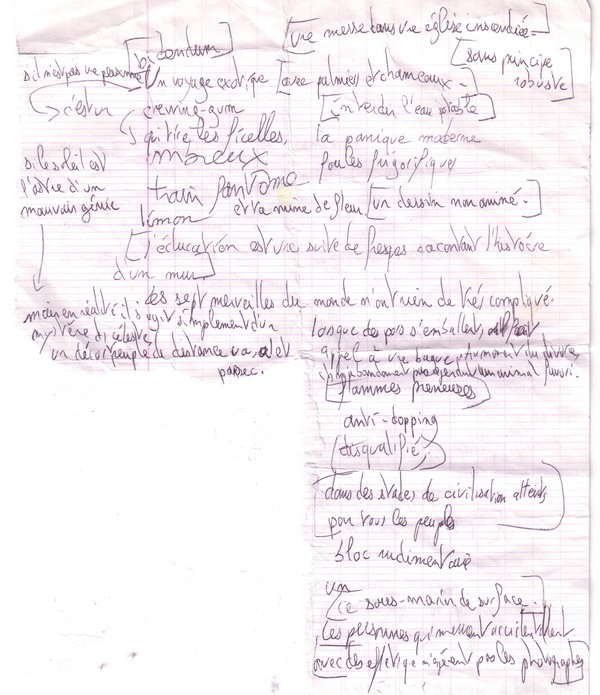 [une messe dans une église incendiée.]
[bidendum]
[sans principe robuste]
s'il n'est pas une personne
Un voyage exotique [avec palmiers et chameaux.]
c'est un
chewing-gum
[un verre d'eau potable]
qui tire les ficelles,
la panique moderne
moreux
poules frigorifiques
si le soleil est
l'astre d'un
mauvais génie
train fantôme
et ta mine de fleur [un dessin non animé.]
limon
[l'éducation est une suite de fresques racontant l'histoire
d'un mur]
les sept merveilles du monde n'ont rien de très compliqué.
mais en réalité il s'agit simplement d'un
mystère si céleste,
un décor peuplé de distance
parsec.
lorsque des pas s'emballent,
appel à une bague
animal
[flammes preneuses]
anti-dopping
[disqualifié.]
[dans des stades de civilisation atteints
par tous les peuples]
bloc rudimentaire
un
[ce sous-marin de surface.]
Les personnes qui meurent accidentellement
avec des effets
pas les photographes